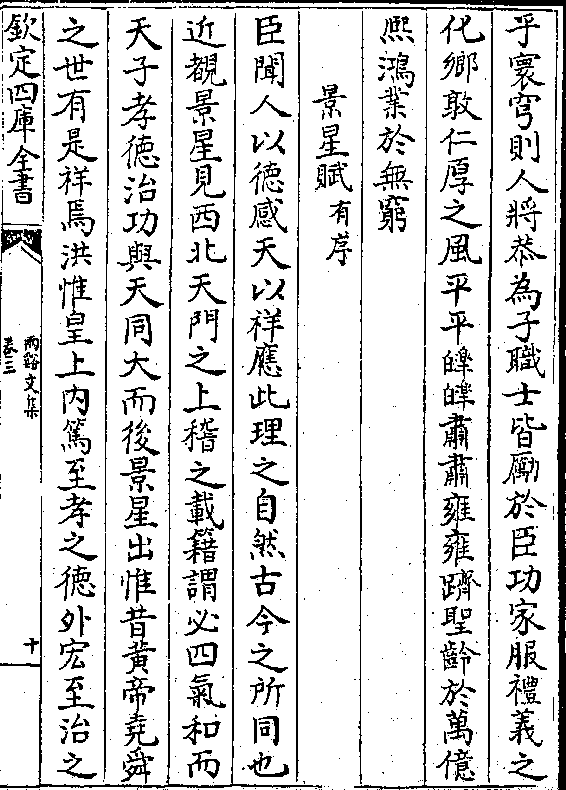 乎寰穹則人將恭為子職士皆勵於臣功家服禮義之
化鄉敦仁厚之風平平皥皥肅肅雍雍躋聖齡於萬億
熙鴻業於無窮
景星賦有序
臣聞人以德感天以祥應此理之自然古今之所同也
近覩景星見西北天門之上稽之載籍謂必四氣和而
天子孝德治功與天同大而後景星出惟昔黃帝堯舜
之世有是祥焉洪惟皇上内篤至孝之德外宏至治之
欽定四庫全書
兩谿文集
卷三
十